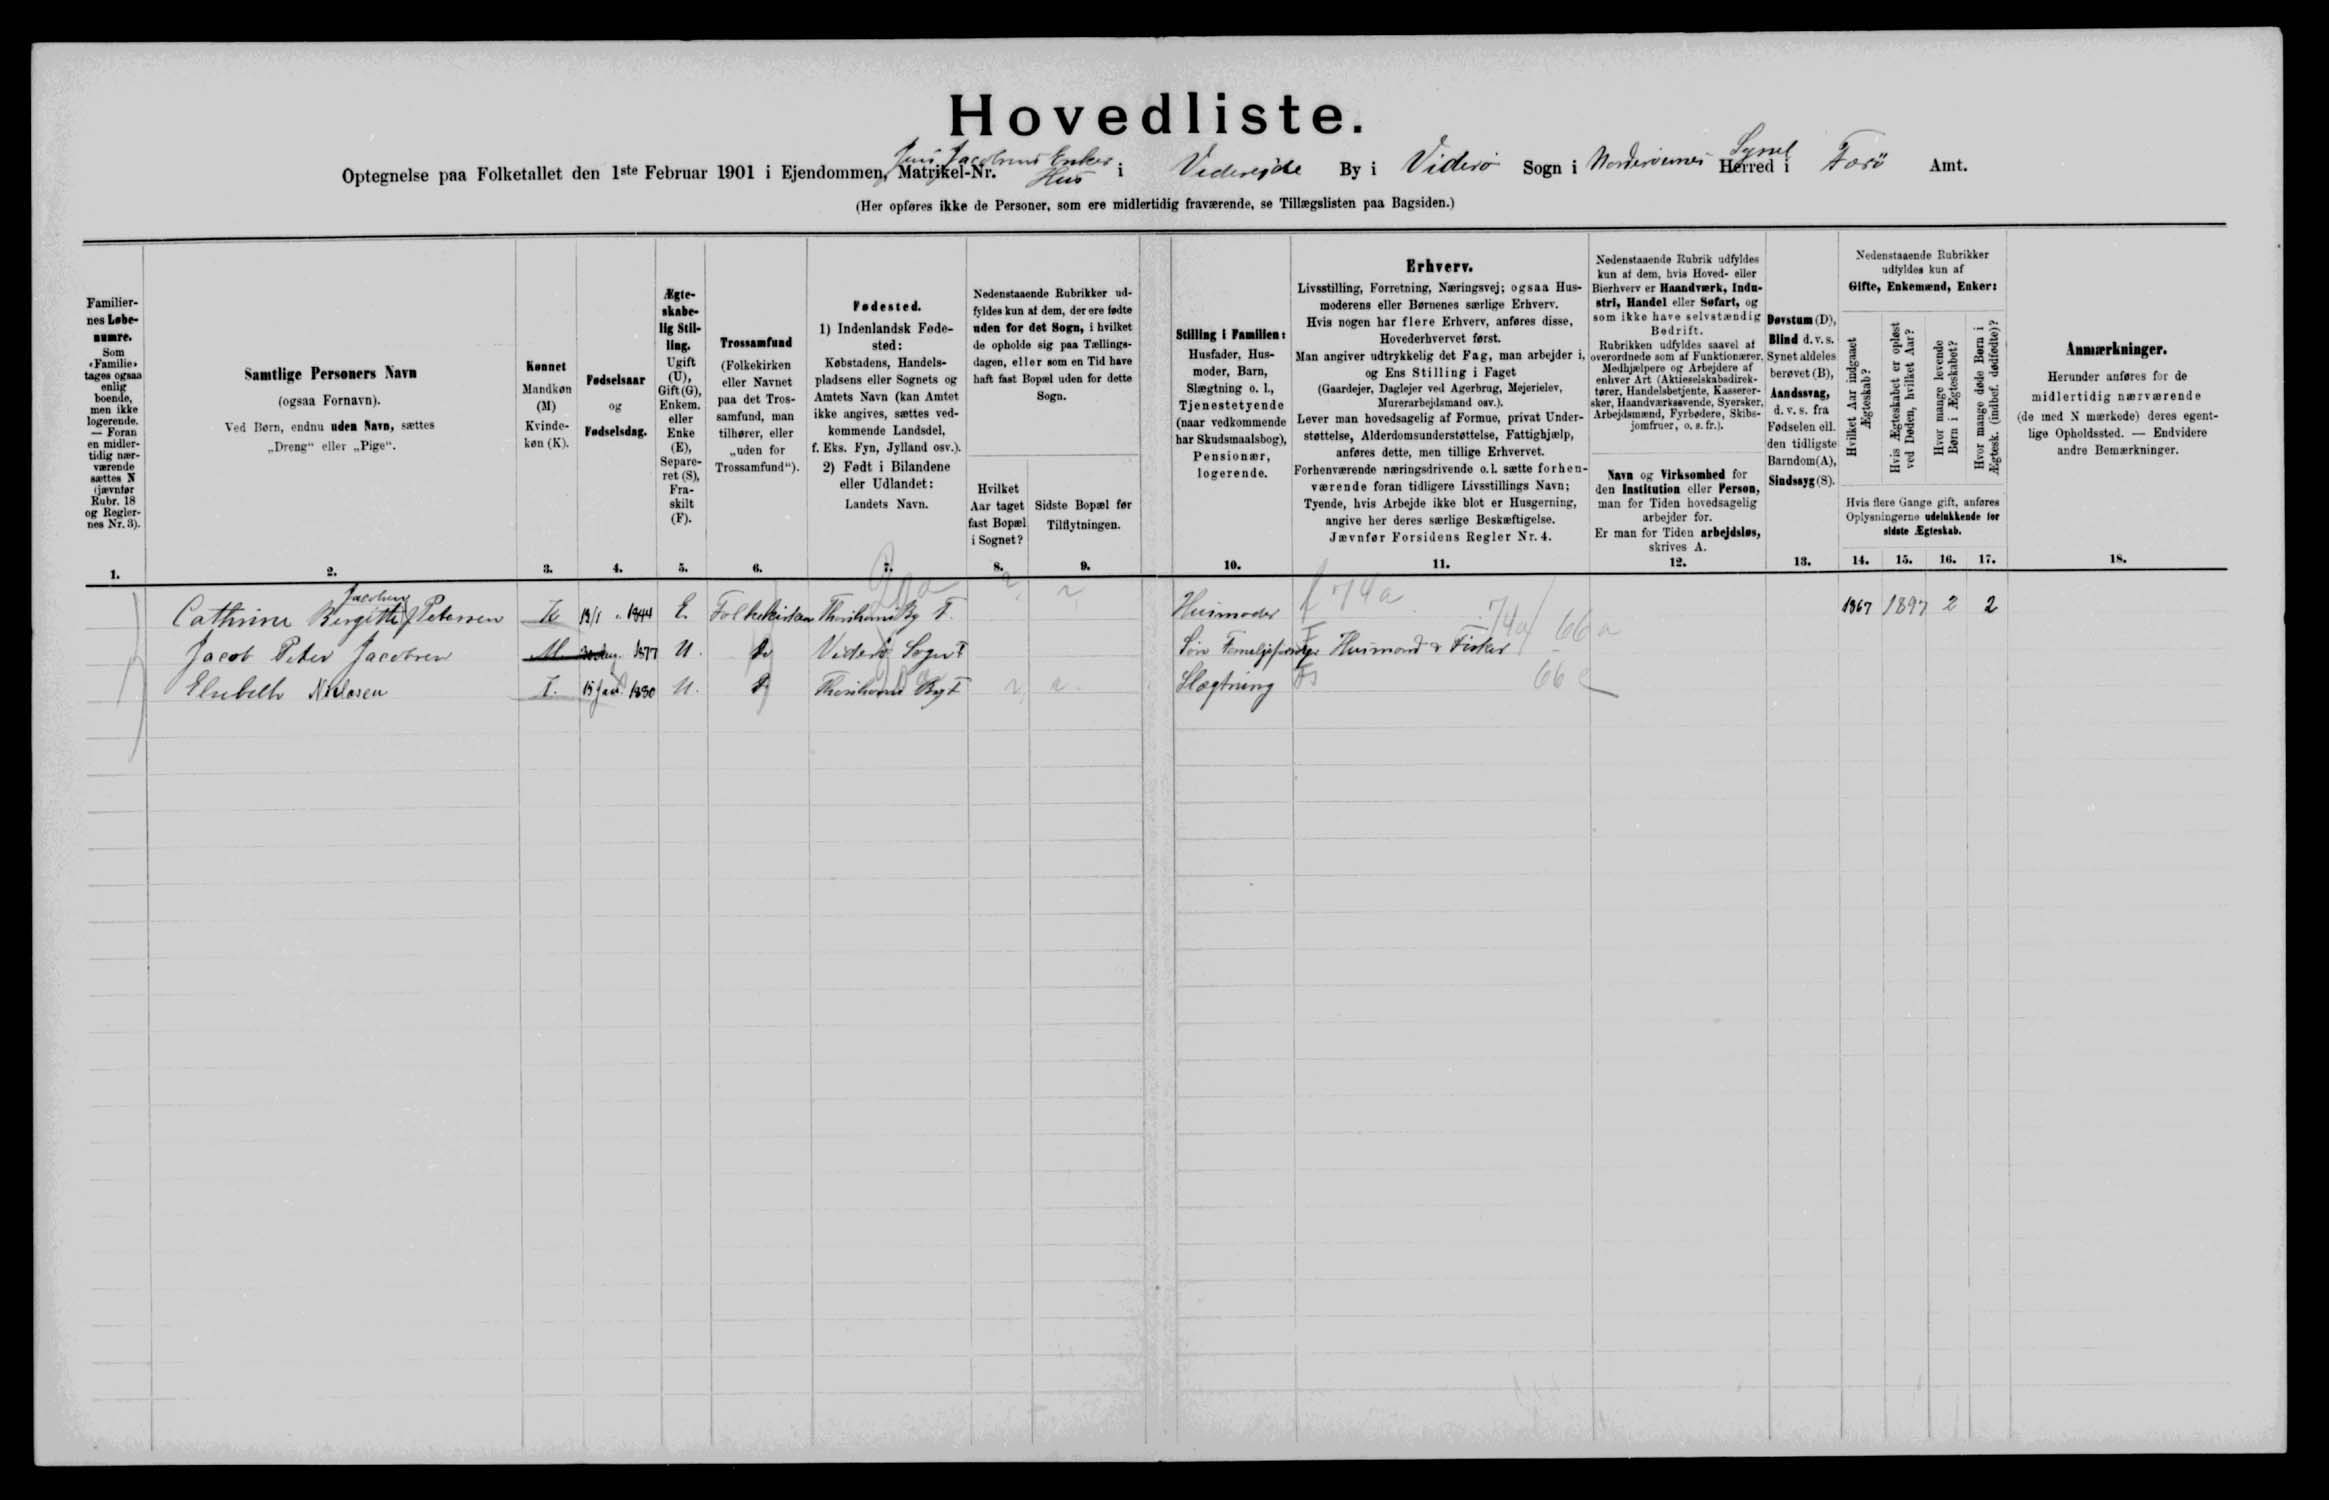 Hovedliste.
Optegnelse paa Folketallet den 1ste Februar 1901 i Ejendommen, Matrikel-Nr. Jens Jacobsens Enkes Hus i Videreide By i Viderö Sogn i Norderøernes Herred Syssel i Færö Amt.
(Her opføres ikke de Personer, som ere midlertidig fraværende, se Tillægslisten paa Bagsiden.)
Familier-
nes Løbe-
numre.
Som
«Familie»
tages ogsaa
enlig
boende,
men ikke
logerende.
— Foran
en midler-
tidig nær-
værende
sættes N
(jævnfør
Rubr. 18
og Regler-
nes Nr. 3).
1.
Samtlige Personers Navn
(ogsaa Fornavn).
Ved Børn, endnu uden Navn, sættes
„Dreng“ eller „Pige“.
2.
Kønnet
Mandkøn
(M)
Kvinde-
køn (K).
3.
Fødselsaar
og
Fødselsdag.
4.
Ægte-
skabe-
lig Stil-
ling.
Ugift
(U),
Gift (G),
Enkem.
eller
Enke
(E),
Separe-
ret (S),
Fra-
skilt
(F).
5.
Trossamfund
(Folkekirken
eller Navnet
paa det Tros-
samfund, man
tilhører, eller
„uden for
Trossamfund“).
6.
Fødested.
1) Indenlandsk Føde-
sted:
Købstadens, Handels-
pladsens eller Sognets og
Amtets Navn (kan Amtet
ikke angives, sættes ved-
kommende Landsdel,
f. Eks. Fyn, Jylland osv.).
2) Født i Bilandene
eller Udlandet:
Landets Navn.
7.
Nedenstaaende Rubrikker ud-
fyldes kun af dem, der ere fødte
uden for det Sogn, i hvilket
de opholde sig paa Tællings-
dagen, eller som en Tid have
haft fast Bopæl uden for dette
Sogn.
Hvilket
Aar taget
fast Bopæl
i Sognet?
8.
Sidste Bopæl før
Tilflytningen.
9.
Stilling i Familien:
Husfader, Hus-
moder, Barn,
Slægtning o. l.,
Tjenestetyende
(naar vedkommende
har Skudsmaalsbog),
Pensionær,
logerende.
10.
Erhverv.
Livsstilling, Forretning, Næringsvej; ogsaa Hus-
moderens eller Børnenes særlige Erhverv.
Hvis nogen har flere Erhverv, anføres disse,
Hovederhvervet først.
Man angiver udtrykkelig det Fag, man arbejder i,
og Ens Stilling i Faget
(Gaardejer, Daglejer ved Agerbrug, Mejerielev,
Murerarbejdsmand osv.).
Lever man hovedsagelig af Formue, privat Under-
støttelse, Alderdomsunderstøttelse, Fattighjælp,
anføres dette, men tillige Erhvervet.
Forhenværende næringsdrivende o. l. sætte forhen-
værende foran tidligere Livsstillings Navn;
Tyende, hvis Arbejde ikke blot er Husgerning,
angive her deres særlige Beskæftigelse.
Jævnfør Forsidens Regler Nr. 4.
11.
Nedenstaaende Rubrik udfyldes
kun af dem, hvis Hoved- eller
Bierhverv er Haandværk, Indu-
stri, Handel eller Søfart, og
som ikke have selvstændig
Bedrift.
Rubrikken udfyldes saavel af
overordnede som af Funktionærer,
Medhjælpere og Arbejdere af
enhver Art (Aktieselskabsdirek-
tører, Handelsbetjente, Kasserer-
sker, Haandværkssvende, Syersker,
Arbejdsmænd, Fyrbødere, Skibs-
jomfruer, o. s. fr.).
Navn og Virksomhed for
den Institution eller Person,
man for Tiden hovedsagelig
arbejder for.
Er man for Tiden arbejdsløs,
skrives A.
12.
Døvstum (D),
Blind d. v. s.
Synet aldeles
berøvet (B),
Aandssvag,
d. v. s. fra
Fødselen ell.
den tidligste
Barndom (A),
Sindssyg (S).
13.
Nedenstaaende Rubrikker
udfyldes kun af
Gifte, Enkemænd, Enker:
Hvilket Aar indgaaet
Ægteskab?
Hvis Ægteskabet er opløst
ved Døden, hvilket Aar?
Hvor mange levende
Børn i Ægteskabet?
Hvor mange døde Børn i
Ægtesk. (indbef. dødfødte)?
Hvis flere Gange gift, anføres
Oplysningerne udelukkende for
sidste Ægteskab.
14. 15. 16. 17.
Anmærkninger.
Herunder anføres for de
midlertidig nærværende
(de med N mærkede) deres egent-
lige Opholdssted. — Endvidere
andre Bemærkninger.
18.
Cathrine Birgitte Jacobsen f Petersen K 13/1 1844 E. Folkekirken Thorshavn By F. Husmoder f 74a 1867 1897 2 2
Jacob Peter Jacobsen M 1877 U. Do Viderö Sogn F Søn Familjeforsørger Husmand & Fisker 74a 66a
Elsebeth Nielsen K. 15 Jan. 1880 U. Do Thorshavn By F Slægtning 66